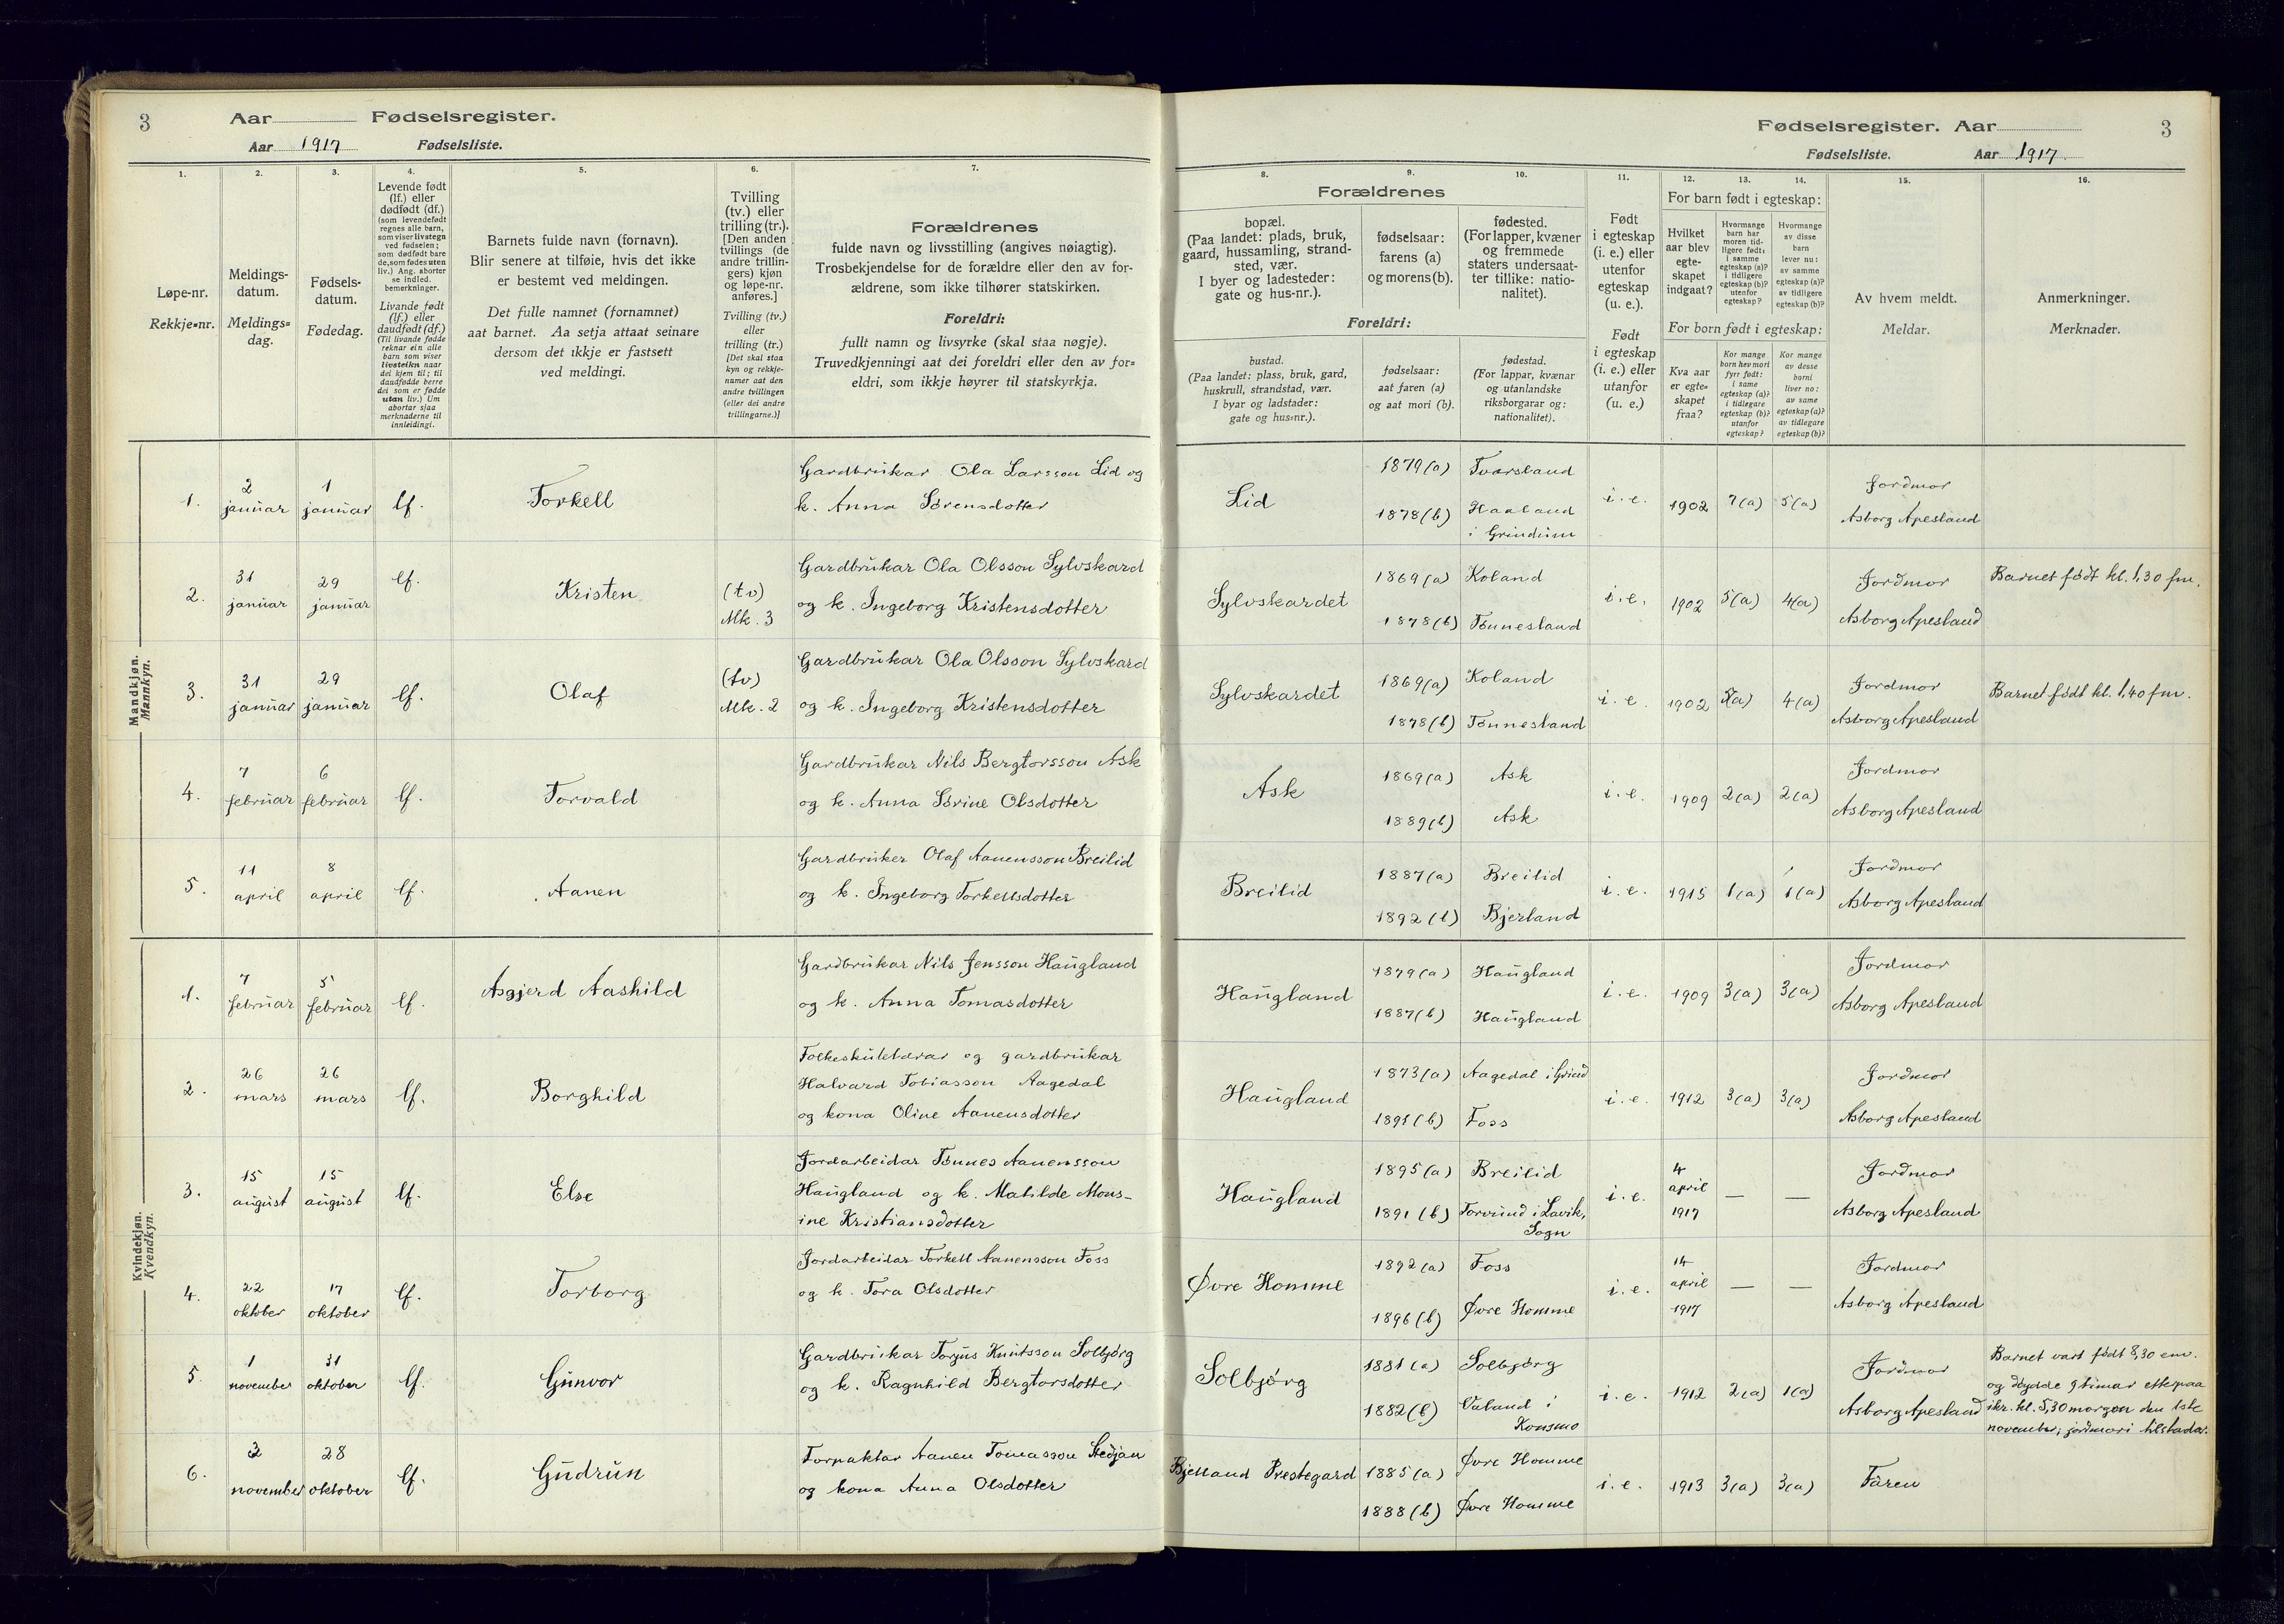 3
Aar Fødselsregister.
Aar 1917 Fødselsliste.
1.
2.
3.
4.
5.
6.
7.
Løpe-nr.
Rekkje=nr.
Meldings-
datum.
Meldings=
dag.
Fødsels-
datum.
Fødedag.
Levende født
(lf.) eller
dødfødt (df.)
(som levendefødt
regnes alle barn,
som viser livstegn
ved fødselen;
som dødfødt bare
de, som fødes uten
liv.) Ang. aborter
se indled.
bemerkninger.
Livande født
(lf.) eller
daudfødt (df.)
(Til livande fødde
reknar ein alle
barn som viser
livsteikn naar
dei kjem til; til
daudfødde berre
dei som er fødde
utan liv.) Um
abortar sjaa
merknaderne til
innleidingi.
Barnets fulde navn (fornavn).
Blir senere at tilføie, hvis det ikke
er bestemt ved meldingen.
Det fulle namnet (fornamnet)
aat barnet. Aa setja attaat seinare
dersom det ikkje er fastsett
ved meldingi.
Tvilling
(tv.) eller
trilling (tr.).
[Den anden
tvillings (de
andre trillin-
gers) kjøn
og løpe-nr.
anføres.]
Tvilling (tv.)
eller
trilling (tr.)
[Det skal staa
kyn og rekkje-
numer aat den
andre tvillingen
(eller dei andre
trillingarne.)]
Forældrenes
fulde navn og livsstilling (angives nøiagtig).
Trosbekjendelse for de forældre eller den av for-
ældrene, som ikke tilhører statskirken.
Foreldri:
fullt namn og livsyrke (skal staa nøgje).
Truvedkjenningi aat dei foreldri eller den av for=
eldri, som ikkje høyrer til statskyrkja.
Mandkjøn.
Mannkyn.
1.
2
januar
1
januar
lf.
Torkell
Gardbrukar Ola Larsson Lid og
k. Anna Sørensdotter
2.
31
januar
29
januar
lf.
Kristen
(tv)
Mk. 3
Gardbrukar Ola Olsson Sylvskard
og k. Ingeborg Kristensdotter
3.
31
januar
29
januar
lf.
Olaf
(tv)
Mk. 2
Gardbrukar Ola Olsson Sylvskard
og k. Ingeborg Kristensdotter
4.
7
februar
6
februar
lf.
Torvald
Gardbrukar Nils Bergtorsson Ask
og k. Anna Sørine Olsdotter
5.
11
april
8
april
lf.
Aanen
Gardbruker Olaf Aanensson Breilid
og k. Ingeborg Torkellsdotter
Kvindekjøn.
Kvendkyn.
1.
7
februar
5
februar
lf.
Asgjerd Aashild
Gardbrukar Nils Jensson Haugland
og k. Anna Tomasdotter
2.
26
mars
26
mars
lf.
Borghild
Folkeskulelærar og gardbrukar
Halvard Tobiasson Aagedal
og kona Oline Aanensdotter
3.
15
august
15
august
lf.
Else
Jordarbeidar Tønnes Aanensson
Haugland og k. Matilde Mons-
ine Kristiansdotter
4.
22
oktober
17
oktober
lf.
Torborg
Jordarbeidar Torkell Aanensson Foss
og k. Tora Olsdotter
5.
1
november
31
oktober
lf.
Gunvor
Gardbrukar Torjus Knutsson Solbjørg
og k. Ragnhild Bergtorsdotter
6.
november
28
oktober
lf.
Gudrun
Forpaktar Aanen Tomasson Stedjan
og kona Anna Olsdotter
Fødselsregister. Aar
3
Fødselsliste. Aar 1917.
8.
9.
10.
11.
12.
13.
14.
15.
16.
Forældrenes
bopæl.
(Paa landet: plads, bruk,
gaard, hussamling, strand-
sted, vær.
I byer og ladesteder:
gate og hus-nr.).
fødselsaar:
farens (a)
og morens (b).
fødested.
(For lapper, kvæner
og fremmede
staters undersaat-
ter tillike: natio-
nalitet).
Foreldri:
bustad.
(Paa landet: plass, bruk, gard,
huskrull, strandstad, vær.
I byar og ladstader:
gate og hus=nr.).
fødselsaar:
aat faren (a)
og aat mori (b).
fødestad.
(For lappar, kvænar
og utanlandske
riksborgarar og:
nationalitet).
Født
i egteskap
(i. e.) eller
utenfor
egteskap
(u. e.).
Født
i egteskap
(i. e.) eller
utanfor
(u. e.)
For barn født i egteskap:
Hvilket
aar blev
egte-
skapet
indgaat?
Hvormange
barn har
moren tid-
ligere født:
i samme
egteskap (a)?
i tidligere
egteskap (b)?
utenfor
egteskap?
Hvormange
av disse
barn
lever nu:
av samme
egteskap (a)?
av tidligere
egteskap (b)?
For born født i egteskap:
Kva aar
er egte=
skapet
fraa?
Kor mange
born hev mori
fyrr født:
i same
egteskap (a)?
i tidlegare
egteskap (b)?
utanfor
egteskap?
Kor mange
av desse
borni
liver no:
av same
egteskap (a)?
av tidlegare
egteskap (b)?
Av hvem meldt.
Meldar.
Anmerkninger.
Merknader.
Lid
1879 (a)
1878 (b)
Tvarsland
Haaland
i Grindum
i. e.
1902
7 (a)
5 (a)
Jordmor
Asborg Apesland
Sylvskardet
1869 (a)
1878 (b)
Koland
Tønnesland
i. e.
1902
5 (a)
4 (a)
Jordmor
Asborg Apesland
Barnet født kl. 1,30 fm.
Sylvskardet
1869 (a)
1878 (b)
Koland
Tønnesland
i. e.
1902
5 (a)
4 (a)
Jordmor
Asborg Apesland
Barnet født kl. 1,40 fm.
Ask
1869 (a)
1889 (b)
Ask
Ask
i. e.
1909
2 (a)
2 (a)
Jordmor
Asborg Apesland
Breilid
1887 (a)
1892 (b)
Breilid
Bjerland
i. e.
1915
1 (a)
1 (a)
Jordmor
Asborg Apesland
Haugland
1879 (a)
1887 (b)
Haugland
Haugland
i. e.
1909
3 (a)
3 (a)
Jordmor
Asborg Apesland
Haugland
1873 (a)
1891 (b)
Aagedal i Grind
Foss
i. e.
1912
3 (a)
3 (a)
Jordmor
Asborg Apesland
Haugland
1895 (a)
1891 (b)
Breilid
Torvund i Lavik,
Sogn
i. e.
4
april
1917
—
—
Jordmor
Asborg Apesland
Øvre Homme
1892 (a)
1896 (b)
Foss
Øvre Homme
i. e.
14
april
1917
—
—
Jordmor
Asborg Apesland
Solbjørg
1881 (a)
1882 (b)
Solbjørg
Valand i
Konsmo
i. e.
1912
2 (a)
1 (a)
Jordmor
Asborg Apesland
Barnet vart født 8,30 em.
og døydde 9 timar etterpaa
kl. 5,30 morgon den 1ste
november, jordmori tilstadar.
Bjelland Prestegard
1885 (a)
1888 (b)
Øvre Homme
Øvre Homme
i. e.
1913
3 (a)
3 (a)
Faren